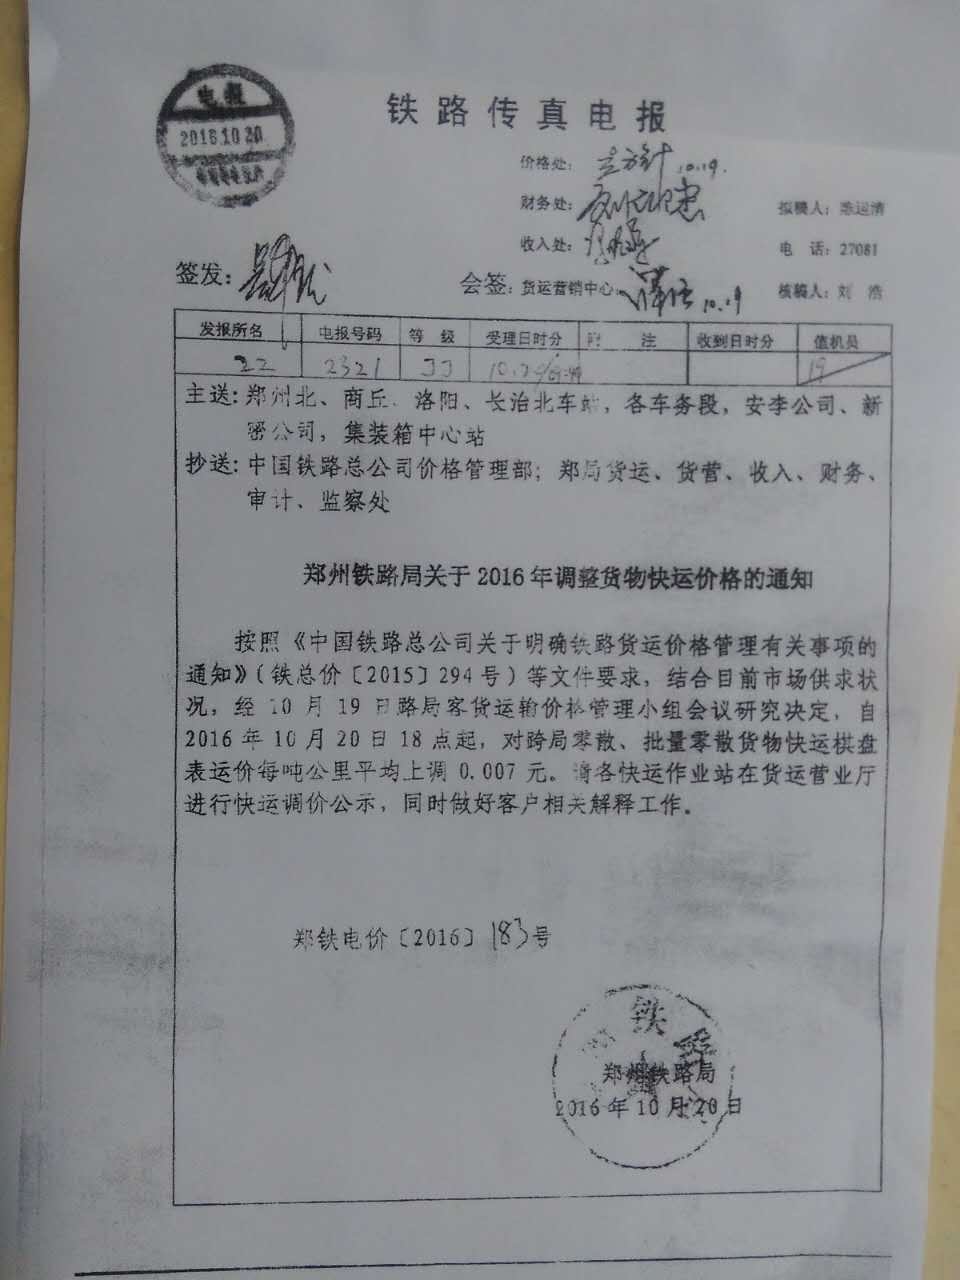 电报
2016.10.20
铁路传真电报
价格处： 10.19.
财务处：
拟稿人：陈运清
收入处：
电 话：27081
签发：
会签：货运营销中心： 10.19
核稿人：刘 浩
发报所名 电报号码 等 级 受理日时分 附 注 收到日时分 值机员
22 2321 JJ 19
主送：郑州北、商丘、洛阳、长治北车站，各车务段，安李公司、新
密公司，集装箱中心站
抄送：中国铁路总公司价格管理部；郑局货运、货营、收入、财务、
审计、监察处
郑州铁路局关于2016年调整货物快运价格的通知
按照《中国铁路总公司关于明确铁路货运价格管理有关事项的
通知》（铁总价〔2015〕294号）等文件要求，结合目前市场供求状
况，经10月19日路局客货运输价格管理小组会议研究决定，自
2016年10月20日18点起，对跨局零散、批量零散货物快运棋盘
表运价每吨公里平均上调0.007元。请各快运作业站在货运营业厅
进行快运调价公示，同时做好客户相关解释工作。
郑铁电价〔2016〕183号
郑州铁路局
2016年10月20日